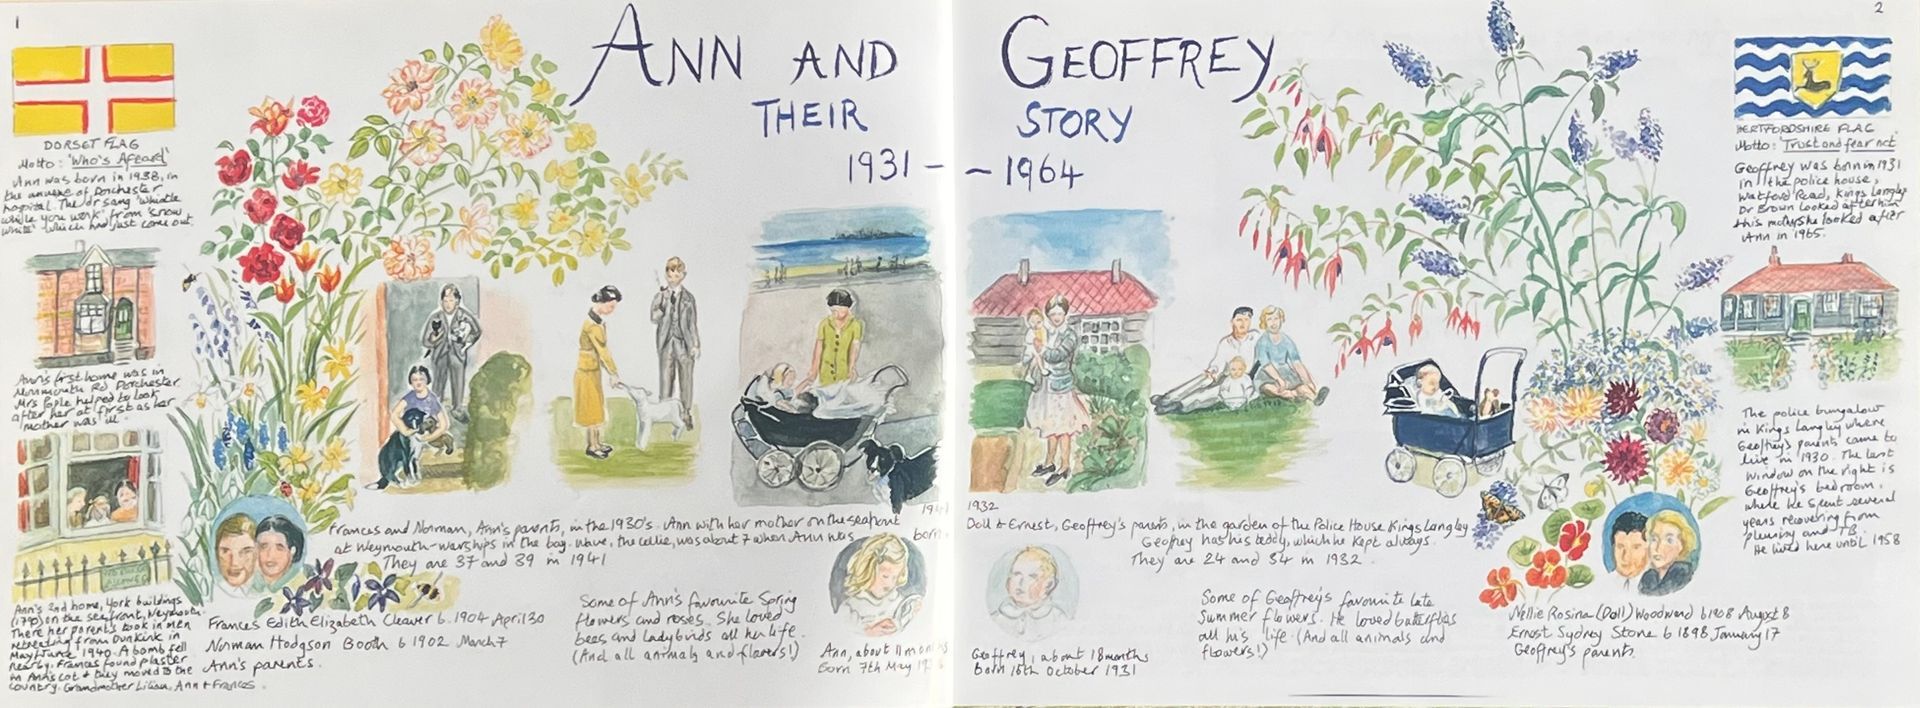 1
ANN AND GEOFFREY
THEIR STORY
1931 - - 1964
2
DORSET FLAG
Motto: 'Who's Afeard'
Ann was born in 1938, in
the annexe of Dorchester
hospital. The dr sang 'Whistle
while you work' from 'Snow
White' which had just come out.
Ann's first home was in
Monmouth Rd Dorchester.
Mrs Pople helped to look
after her at first as her
mother was ill.
Ann's 2nd home, York buildings
(1790) on the seafront, Weymouth.
There her parents took in men
retreating from Dunkirk in
May/June 1940. A bomb fell
nearby. Frances found plaster
in Ann's cot & they moved to the
country. Grandmother Lilian, Ann & Frances.
Frances and Norman, Ann's parents, in the 1930's. Ann with her mother on the seafront
at Weymouth - warships in the bay. Wave, the collie, was about 7 when Ann was born.
They are 37 and 39 in 1941
Frances Edith Elizabeth Cleaver b. 1904 April 30
Norman Hodgson Booth b 1902 March 7
Ann's parents.
Some of Ann's favourite Spring
flowers and roses. She loved
bees and ladybirds all her life.
(And all animals and flowers!)
Ann, about 11 months
Born 7th May
1932
Doll & Ernest, Geoffrey's parents, in the garden of the Police House Kings Langley
Geoffrey has his teddy, which he kept always.
They are 24 and 34 in 1932.
Geoffrey, about 18 months
Born 16th October 1931
Some of Geoffrey's favourite late
Summer flowers. He loved butterflies
all his life. (And all animals and
flowers!)
Nellie Rosina (Doll) Woodward b 1908 August 8
Ernest Sydney Stone b 1898 January 17
Geoffrey's parents.
HERTFORDSHIRE FLAG
Motto: 'Trust and fear not'
Geoffrey was born in 1931
in the police house,
Watford Road, Kings Langley
Dr Brown looked after him
& his mother she looked after
Ann in 1965.
The police bungalow
in Kings Langley where
Geoffrey's parents came to
live in 1930. The last
window on the right is
Geoffrey's bedroom,
where he spent several
years recovering from
pleurisy and TB.
He lived here until 1958